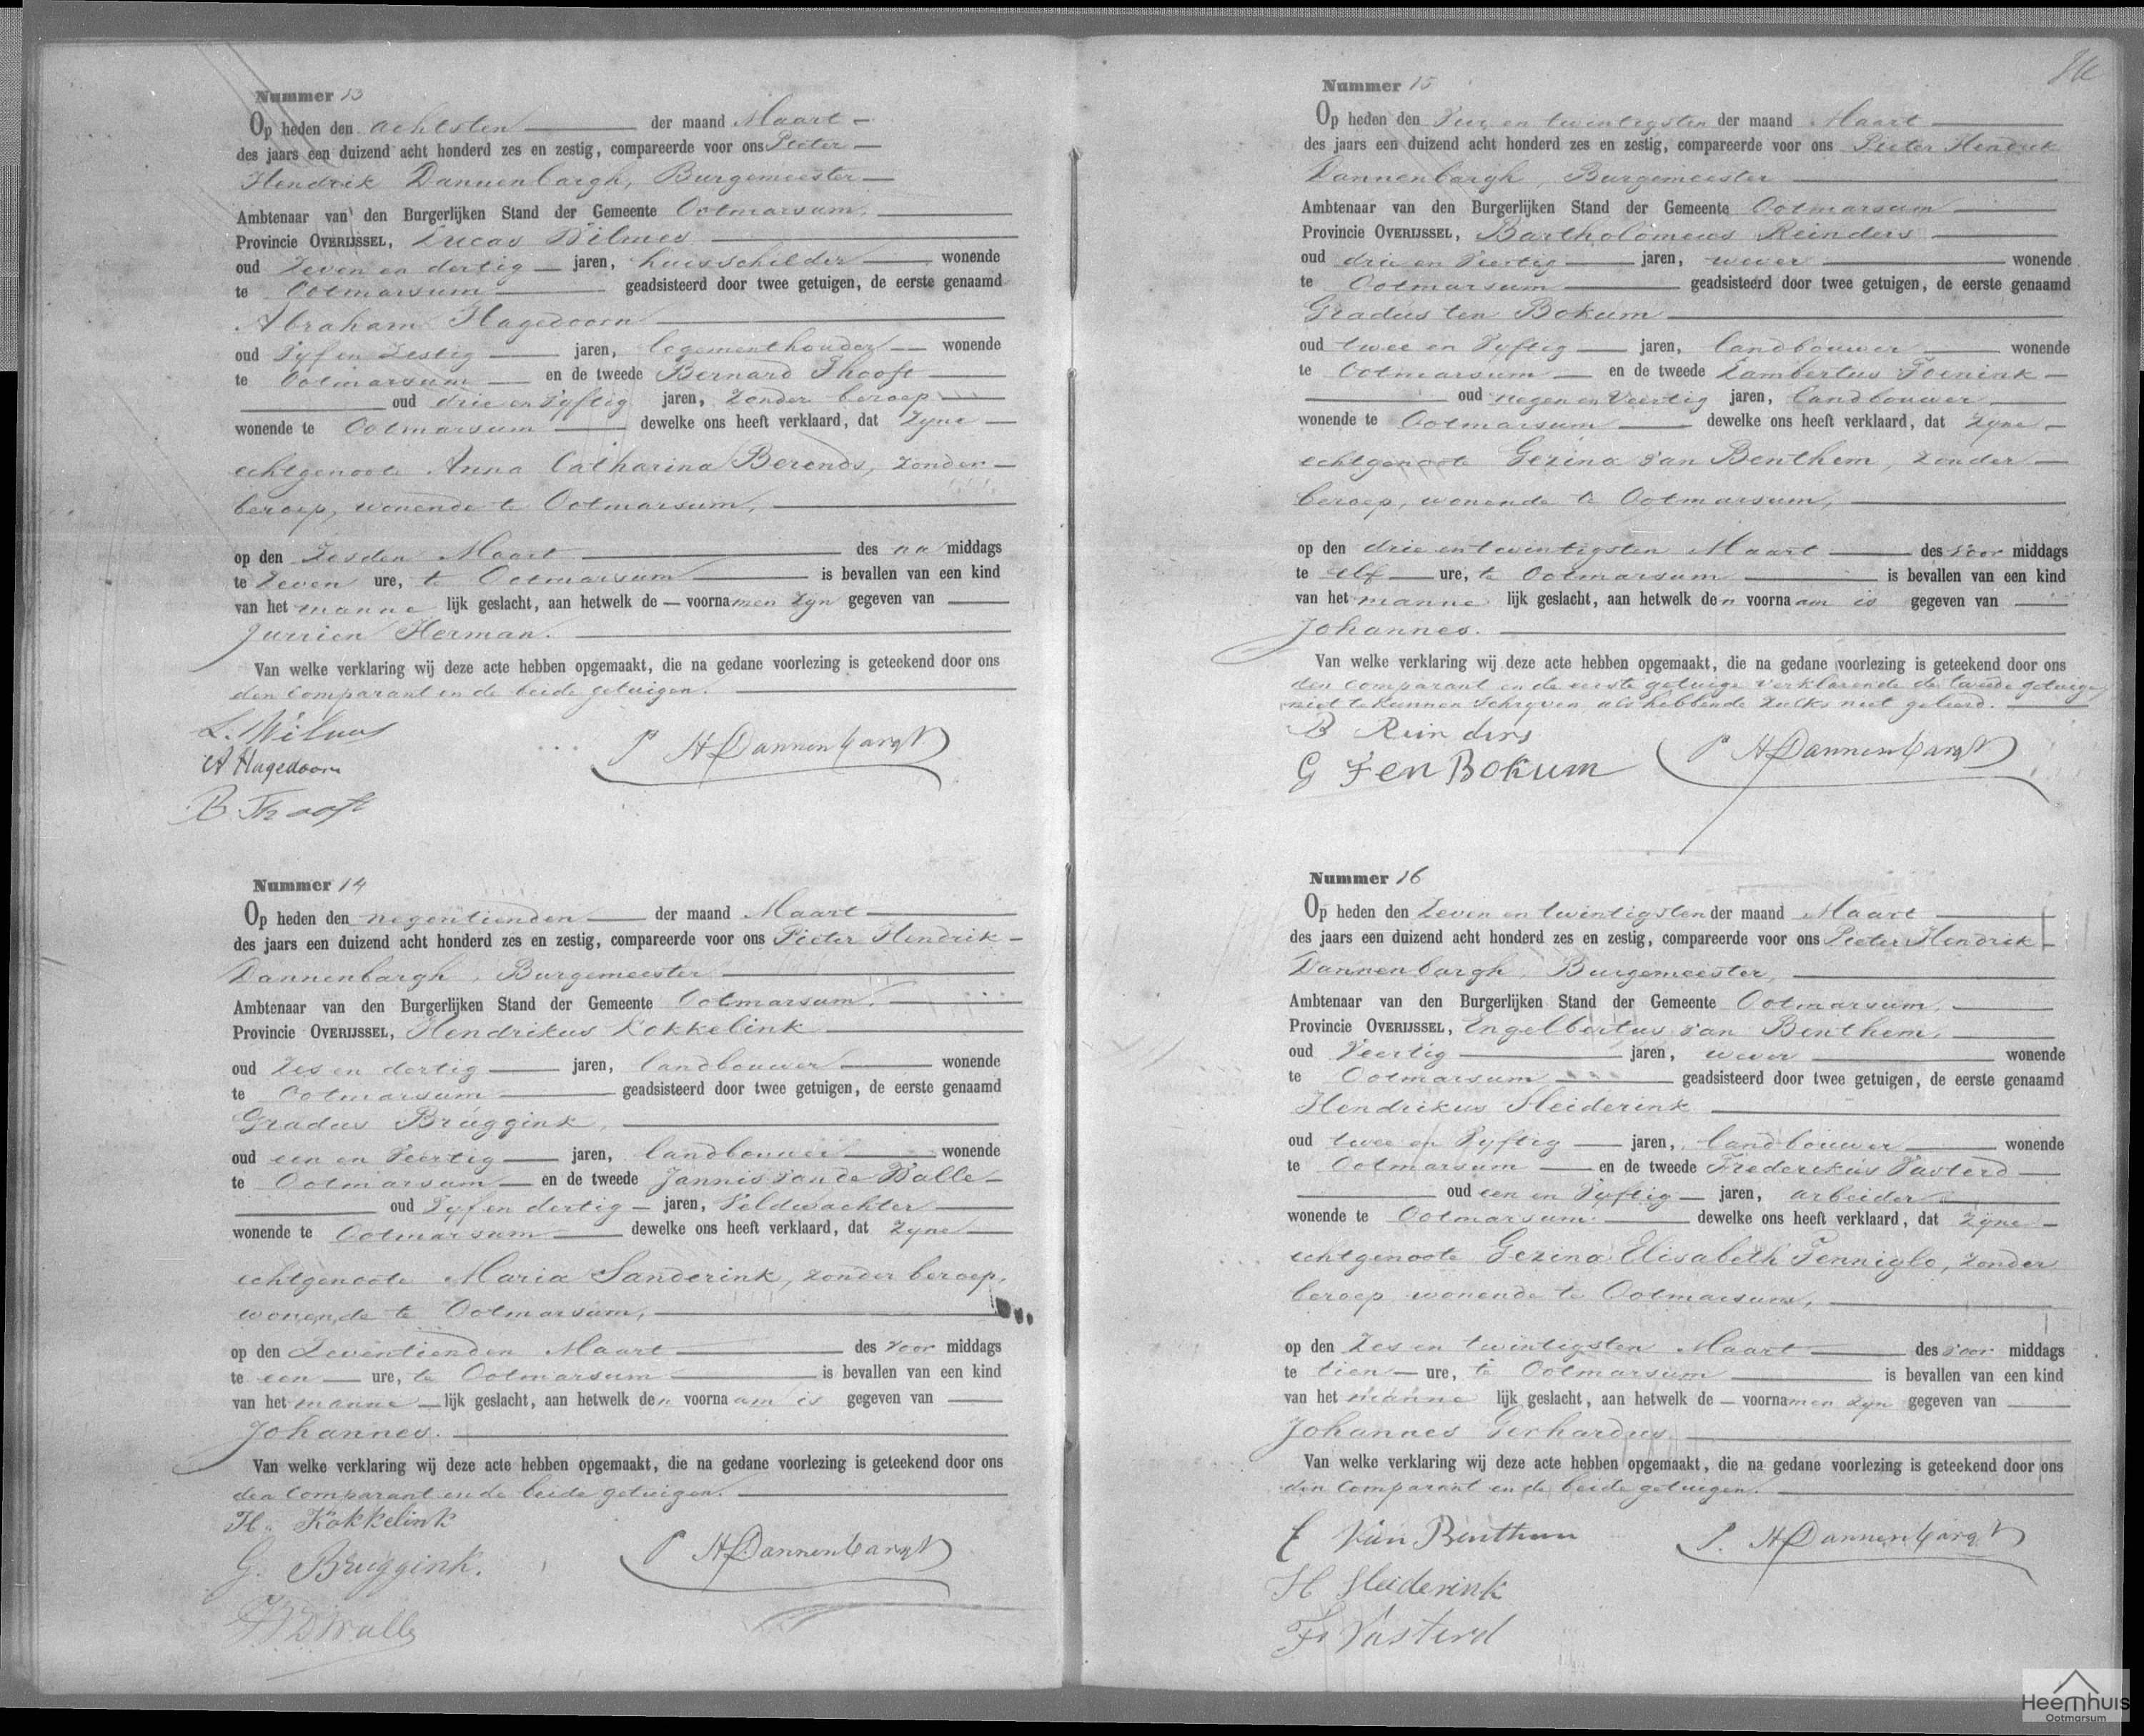 Nummer 13
Op heden den achtsten der maand Maart
des jaars een duizend acht honderd zes en zestig, compareerde voor ons Pieter
Hendrik Dannenbargh, Burgemeester
Ambtenaar van den Burgerlijken Stand der Gemeente Ootmarsum,
Provincie OVERIJSSEL, Lucas Wilmes
oud zeven en dertig jaren, huisschilder wonende
te Ootmarsum geadsisteerd door twee getuigen, de eerste genaamd
Abraham Hagedoorn
oud vyf en zestig jaren, logementhouder wonende
te Ootmarsum en de tweede Bernard Thooft
oud drie en vyftig jaren, zonder beroep
wonende te Ootmarsum dewelke ons heeft verklaard, dat zyne
echtgenoote Anna Catharina Berends, zonder
beroep, wonende te Ootmarsum,
op den zesden Maart des na middags
te zeven ure, te Ootmarsum is bevallen van een kind
van het manne lijk geslacht, aan hetwelk de voornamen zyn gegeven van
Jurrien Herman.
Van welke verklaring wij deze acte hebben opgemaakt, die na gedane voorlezing is geteekend door ons
den comparant en de beide getuigen.
L. Wilmes
A Hagedoorn
P H Dannenbargh
B Thooft
Nummer 14
Op heden den negentienden der maand Maart
des jaars een duizend acht honderd zes en zestig, compareerde voor ons Pieter Hendrik
Dannenbargh, Burgemeester
Ambtenaar van den Burgerlijken Stand der Gemeente Ootmarsum,
Provincie OVERIJSSEL, Hendrikus Kokkelink
oud zes en dertig jaren, landbouwer wonende
te Ootmarsum geadsisteerd door twee getuigen, de eerste genaamd
Gradus Bruggink,
oud een en veertig jaren, landbouwer wonende
te Ootmarsum en de tweede Jannis van de Walle
oud vyf en dertig jaren, veldwachter
wonende te Ootmarsum dewelke ons heeft verklaard, dat zyne
echtgenoote Maria Sanderink, zonder beroep,
wonende te Ootmarsum,
op den zeventienden Maart des voor middags
te een ure, te Ootmarsum is bevallen van een kind
van het manne lijk geslacht, aan hetwelk den voornaam is gegeven van
Johannes.
Van welke verklaring wij deze acte hebben opgemaakt, die na gedane voorlezing is geteekend door ons
den comparant en de beide getuigen.
H. Kokkelink
G. Bruggink.
P H Dannenbargh
Walle
Nummer 15
Op heden den vier en twintigsten der maand Maart
des jaars een duizend acht honderd zes en zestig, compareerde voor ons Pieter Hendrik
Dannenbargh, Burgemeester
Ambtenaar van den Burgerlijken Stand der Gemeente Ootmarsum
Provincie OVERIJSSEL, Bartholomeus Reinders
oud drie en veertig jaren, wever wonende
te Ootmarsum geadsisteerd door twee getuigen, de eerste genaamd
Gradus ten Bokum
oud twee en vyftig jaren, landbouwer wonende
te Ootmarsum en de tweede Lambertus Toenink
oud negen en veertig jaren, landbouwer
wonende te Ootmarsum dewelke ons heeft verklaard, dat zyne
echtgenoote Gezina van Benthem, zonder
beroep, wonende te Ootmarsum,
op den drie en twintigsten Maart des voor middags
te elf ure, te Ootmarsum is bevallen van een kind
van het manne lijk geslacht, aan hetwelk den voornaam is gegeven van
Johannes.
Van welke verklaring wij deze acte hebben opgemaakt, die na gedane voorlezing is geteekend door ons
den comparant en de eerste getuige verklarende de tweede getuige
niet te kunnen schryven als hebbende zulks niet geleerd.
B Reinders
G Ten Bokum
P H Dannenbargh
Nummer 16
Op heden den zeven en twintigsten der maand Maart
des jaars een duizend acht honderd zes en zestig, compareerde voor ons Pieter Hendrik
Dannenbargh, Burgemeester,
Ambtenaar van den Burgerlijken Stand der Gemeente Ootmarsum,
Provincie OVERIJSSEL, Engelbertus van Benthem,
oud veertig jaren, wever wonende
te Ootmarsum geadsisteerd door twee getuigen, de eerste genaamd
Hendrikus Heiderink
oud twee en vyftig jaren, landbouwer wonende
te Ootmarsum en de tweede Frederikus Vasterd
oud een en vyftig jaren, arbeider
wonende te Ootmarsum dewelke ons heeft verklaard, dat zyne
echtgenoote Gezina Elisabeth Tenniglo, zonder
beroep wonende te Ootmarsum,
op den zes en twintigsten Maart des voor middags
te tien ure, te Ootmarsum is bevallen van een kind
van het manne lijk geslacht, aan hetwelk de voornamen zyn gegeven van
Johannes Gerhardus
Van welke verklaring wij deze acte hebben opgemaakt, die na gedane voorlezing is geteekend door ons
den comparant en de beide getuigen.
E van Benthem
P. H Dannenbargh
H Heiderink
Fr Vasterd
Heemhuis
Ootmarsum